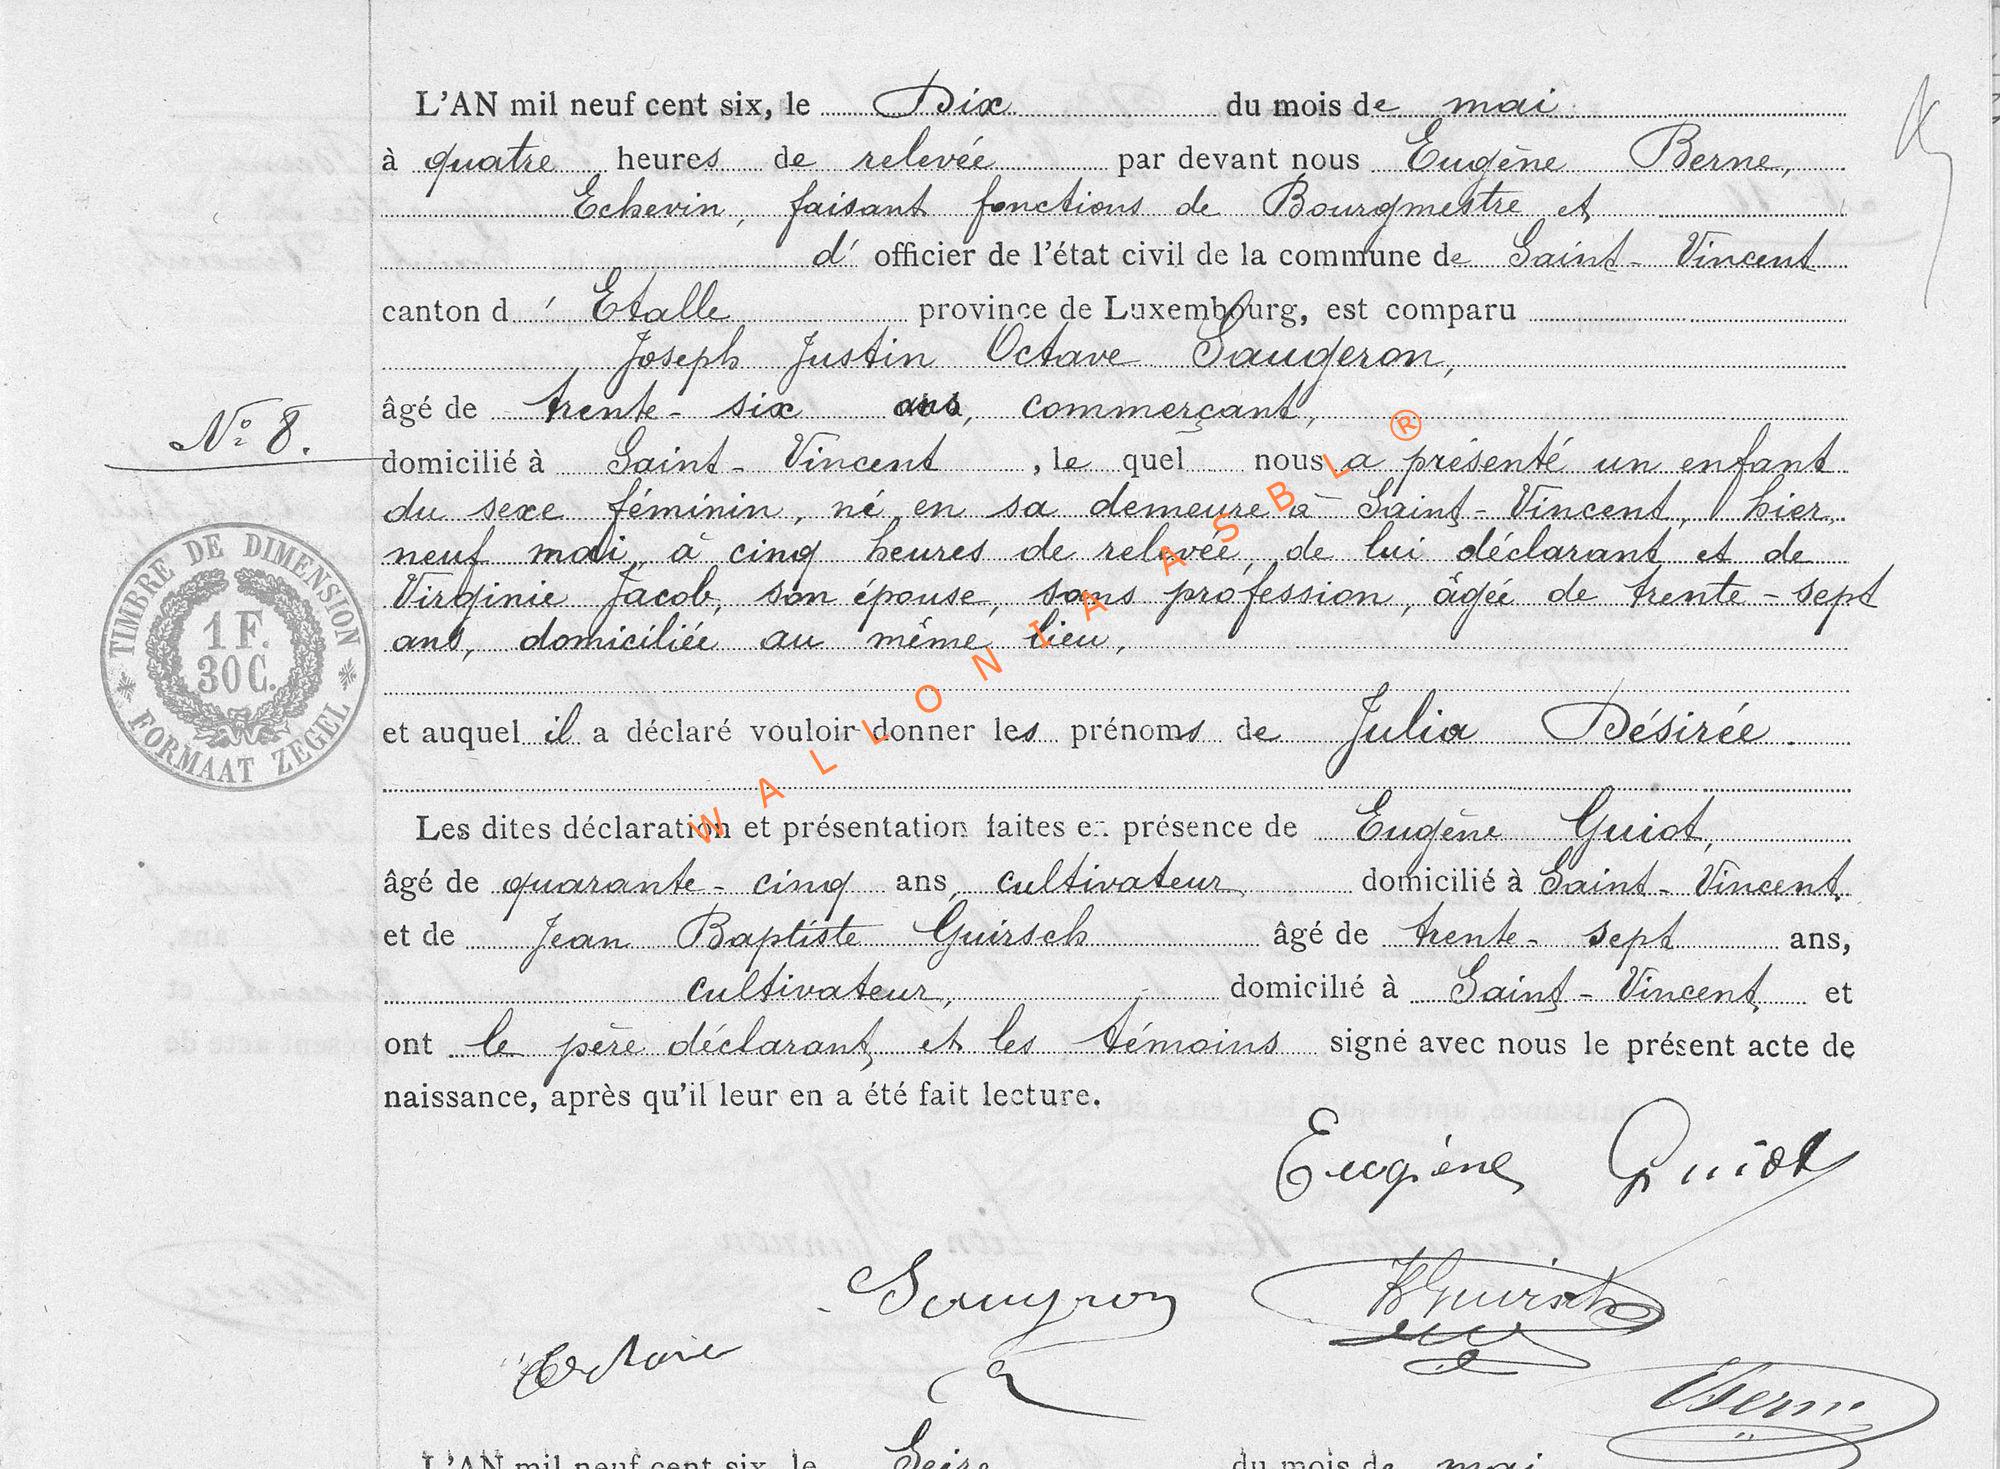 L'AN mil neuf cent six, le Dix du mois de mai
à quatre heures de relevée par devant nous Eugène Berne,
Echevin, faisant fonctions de Bourgmestre et
d' officier de l'état civil de la commune de Saint-Vincent
canton d' Etalle province de Luxembourg, est comparu
Joseph Justin Octave Saugeron,
âgé de trente-six ans, commerçant,
N° 8.
domicilié à Saint-Vincent, le quel nous a présenté un enfant
du sexe féminin, né en sa demeure à Saint-Vincent, hier,
neuf mai, à cinq heures de relevée, de lui déclarant et de
Virginie Jacob, son épouse, sans profession, âgée de trente-sept
ans, domiciliée au même lieu,
et auquel il a déclaré vouloir donner les prénoms de Julia Désirée.
Les dites déclaration et présentation faites en présence de Eugène Guiot,
âgé de quarante-cinq ans, cultivateur, domicilié à Saint-Vincent
et de Jean Baptiste Guirsch âgé de trente-sept ans,
cultivateur, domicilié à Saint-Vincent et
ont le père déclarant et les témoins signé avec nous le présent acte de
naissance, après qu'il leur en a été fait lecture.
TIMBRE DE DIMENSION
1 F.
30 C.
FORMAAT ZEGEL
WALLONIA ASBL ®
Eugène Guiot
Guirsch
Octave
Berne
L'AN mil neuf cent six, le Seize du mois de mai